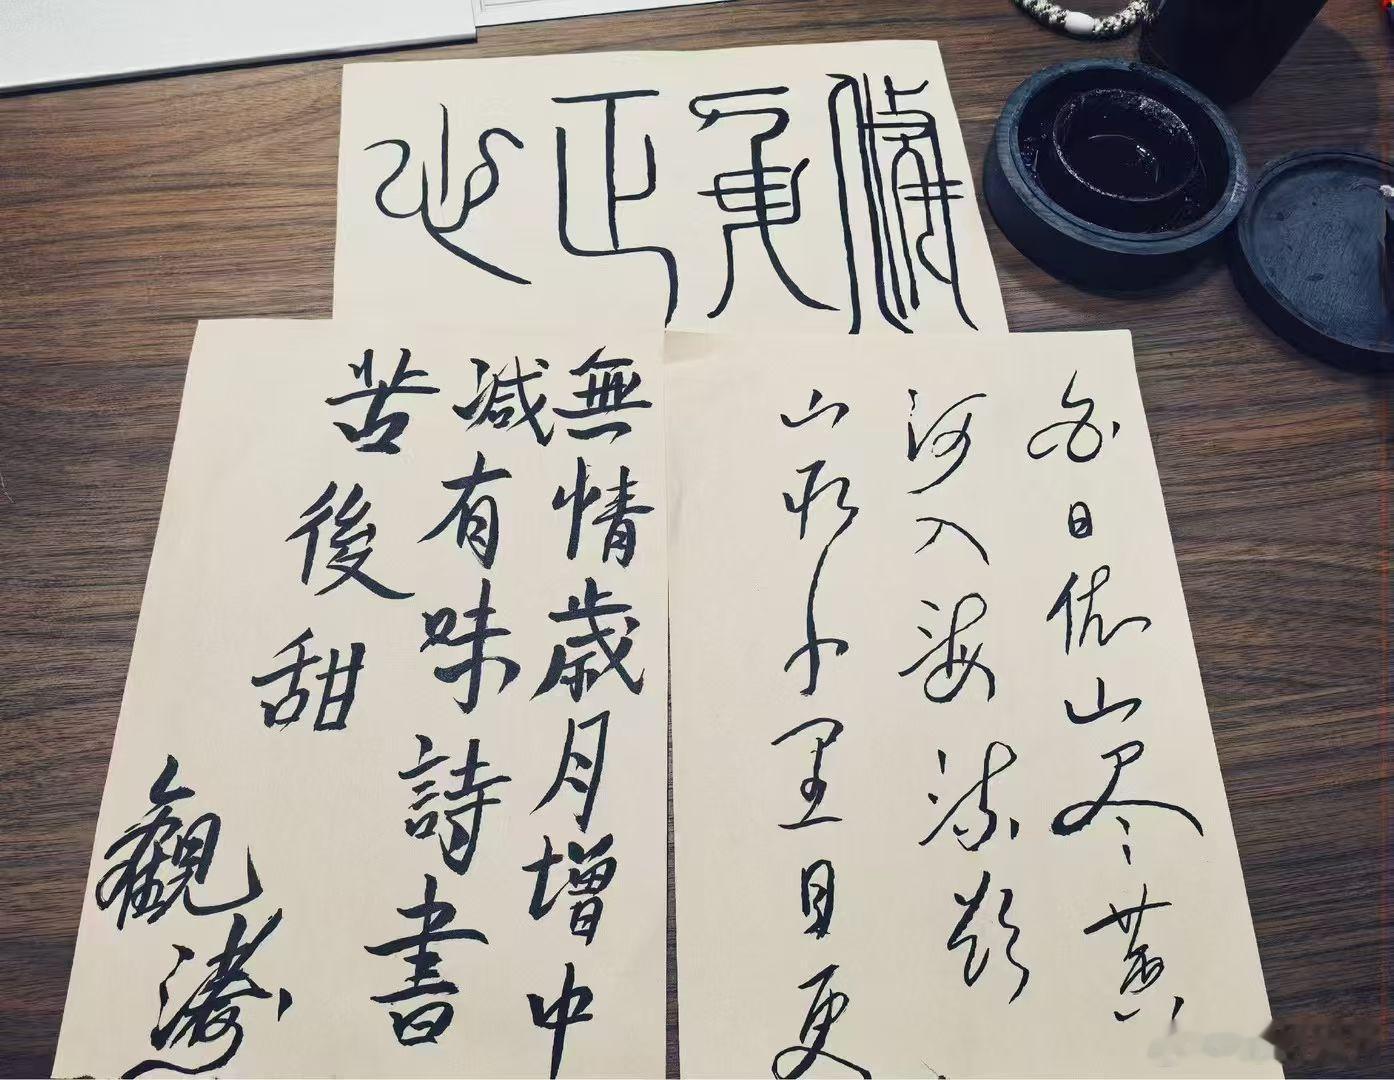 正心
白日依山尽黄
河入海流欲
窮千里目更
無情歲月增中
減有味詩書
苦後甜
觀濤